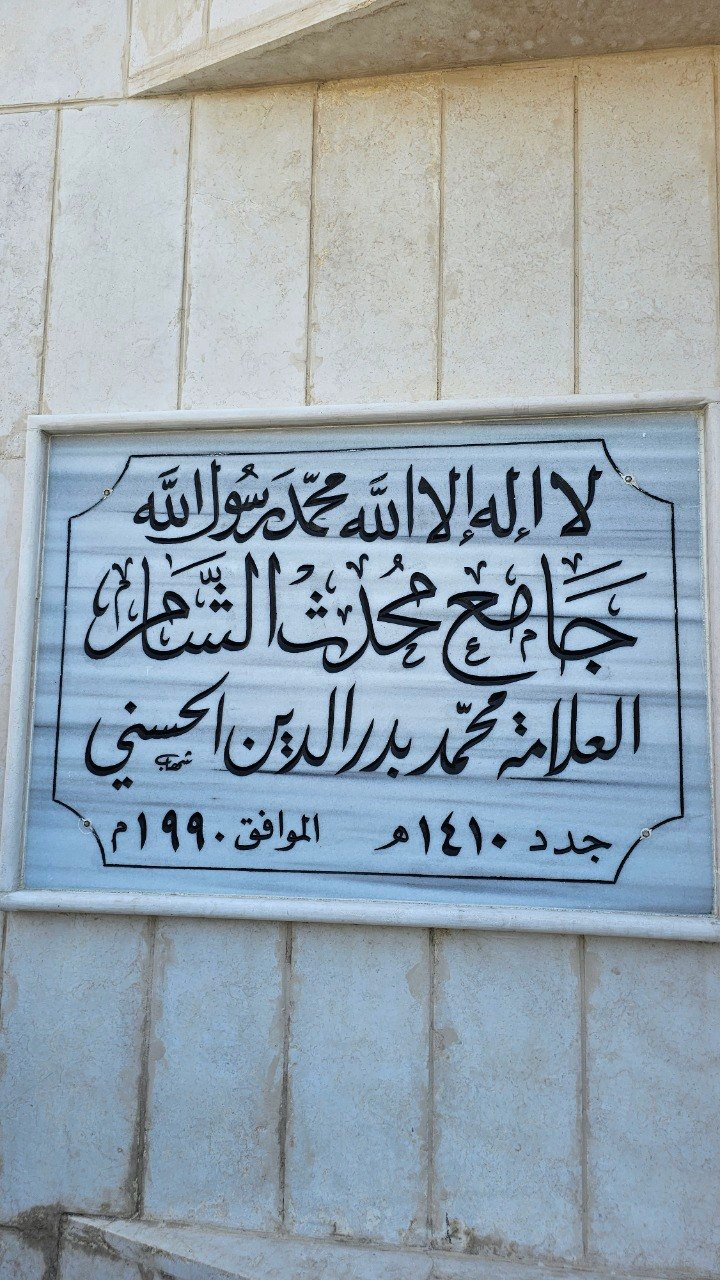 لا إله إلا الله محمد رسول الله
جامع محدث الشام
العلامة محمد بدر الدين الحسني
شهاب
جدد ١٤١٠ هـ الموافق ١٩٩٠ م